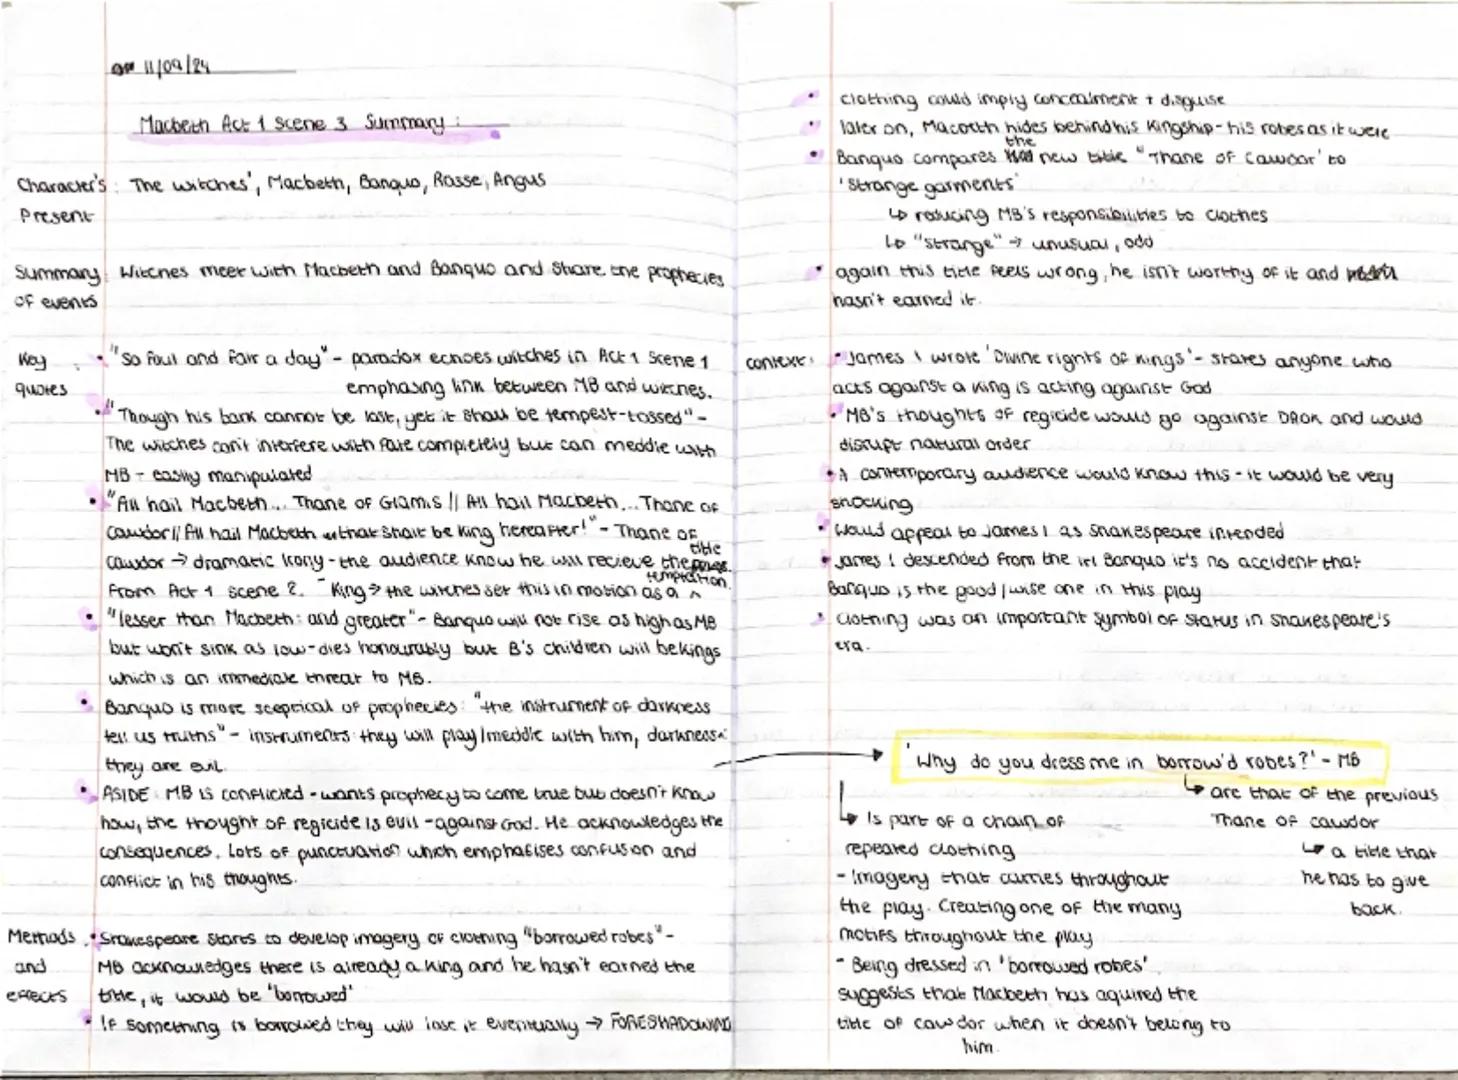 11/09/24
Macbeth Act 1 Scene 3 Summary:
Character's Present: The witches', Macbeth, Banquo, Rosse, Angus
Summary of events: Witches meet with Macbeth and Banquo and share the prophecies
Key quotes
• "So foul and fair a day" - paradox echoes witches in Act 1 Scene 1
emphasing link between MB and witches.
• "Though his bark cannot be lost, yet it shall be tempest-tossed" -
The witches can't interfere with fate completely but can meddle with
MB - easily manipulated
• "All hail Macbeth... Thane of Glamis // All hail Macbeth... Thane of
Cawdor // All hail Macbeth that shalt be King hereafter!" - Thane of
Cawdor → dramatic irony - the audience know he will recieve the title
from Act 1 scene 2. - King → the witches set this in motion as a temptation.
• "lesser than Macbeth: and greater" - Banquo will not rise as high as MB
but won't sink as low - dies honourably but B's children will be kings
which is an immediate threat to MB.
• Banquo is more sceptical of prophecies: "the instrument of darkness
tell us truths" - instruments: they will play/meddle with him, darkness:
they are evil.
• ASIDE: MB is conflicted - wants prophecy to come true but doesn't know
how, the thought of regicide is evil - against God. He acknowledges the
consequences. Lots of punctuation which emphasises confusion and
conflict in his thoughts.
Methods and effects
• Shakespeare starts to develop imagery of clothing "borrowed robes" -
MB acknowledges there is already a king and he hasn't earned the
title, it would be 'borrowed'
• If something is borrowed they will lose it eventually → FORESHADOWING
• clothing could imply concealment + disguise
• later on, Macbeth hides behind his Kingship - his robes as it were
• Banquo compares the new title "Thane of Cawdor' to
'strange garments'
↳ reducing MB's responsibilities to clothes
↳ "strange" → unusual, odd
• again this title feels wrong, he isn't worthy of it and
hasn't earned it.
context:
• James 1 wrote 'Divine rights of Kings' - states anyone who
acts against a king is acting against God
• MB's thoughts of regicide would go against DROK and would
disrupt natural order
• A contemporary audience would know this - it would be very
shocking
• would appeal to James 1 as Shakespeare intended
• James 1 descended from the irl Banquo it's no accident that
Banquo is the good/wise one in this play
• Clothing was an important symbol of status in Shakespeare's
era.
'Why do you dress me in borrow'd robes?' - MB
↳ are that of the previous
Thane of cawdor
↳ a title that
he has to give
back.
↳ Is part of a chain of
repeated clothing
- Imagery that carries throughout
the play. Creating one of the many
motifs throughout the play
- Being dressed in 'borrowed robes'
suggests that Macbeth has aquired the
title of cawdor when it doesn't belong to
him.